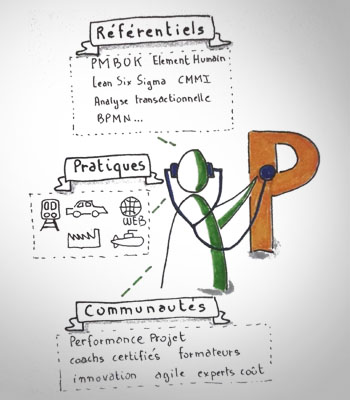 Référentiels
PMBOK Element Humain
Lean Six Sigma CMMI
Analyse transactionnelle
BPMN...
Pratiques
WEB
P
Communautés
Performance Projet
coachs certifiés formateurs
innovation agile experts coût